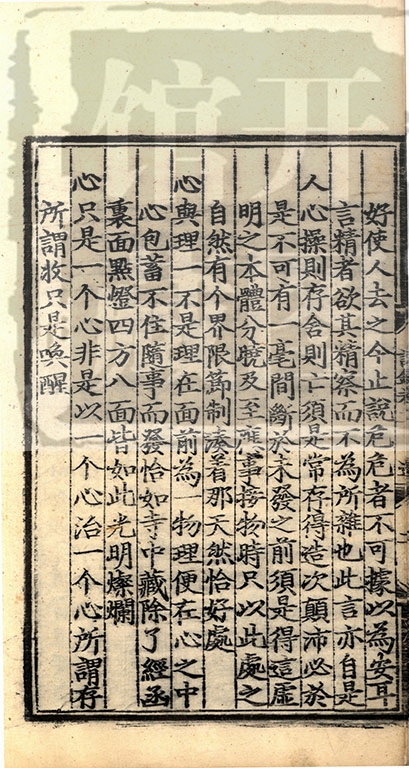 好使人去之今止說危危者不可據以為安耳
言精者欲其精察而不為所雜也此言亦自是
人心操則存舍則亡須是常存得造次顛沛必於
是不可有一毫間斷於未發之前須是得這虛
明之本體分曉及至應事接物時只以此處之
自然有个界限節制湊着那天然恰好處
心與理一不是理在面前為一物理便在心之中
心包蓄不住隨事而發恰如寺中藏除了經函
裏面點燈四方八面皆如此光明燦爛
心只是一个心非是以一个心治一个心所謂存
所謂收只是喚醒